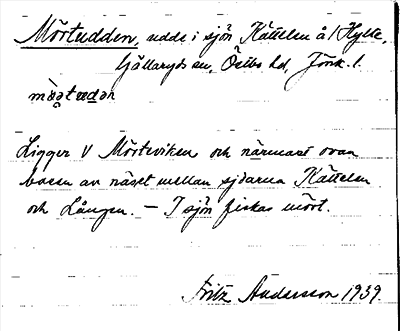 Mörtudden, udde i sjön Kättelen å/ Hylte,
Gällaryds sn, Östbo hd, Jönk. l.
Ligger V Mörteviken och närmast ovan
basen av näset mellan sjöarna Kättelen
och Lången. — I sjön fiskas mört.
Fritz Andersson 1939